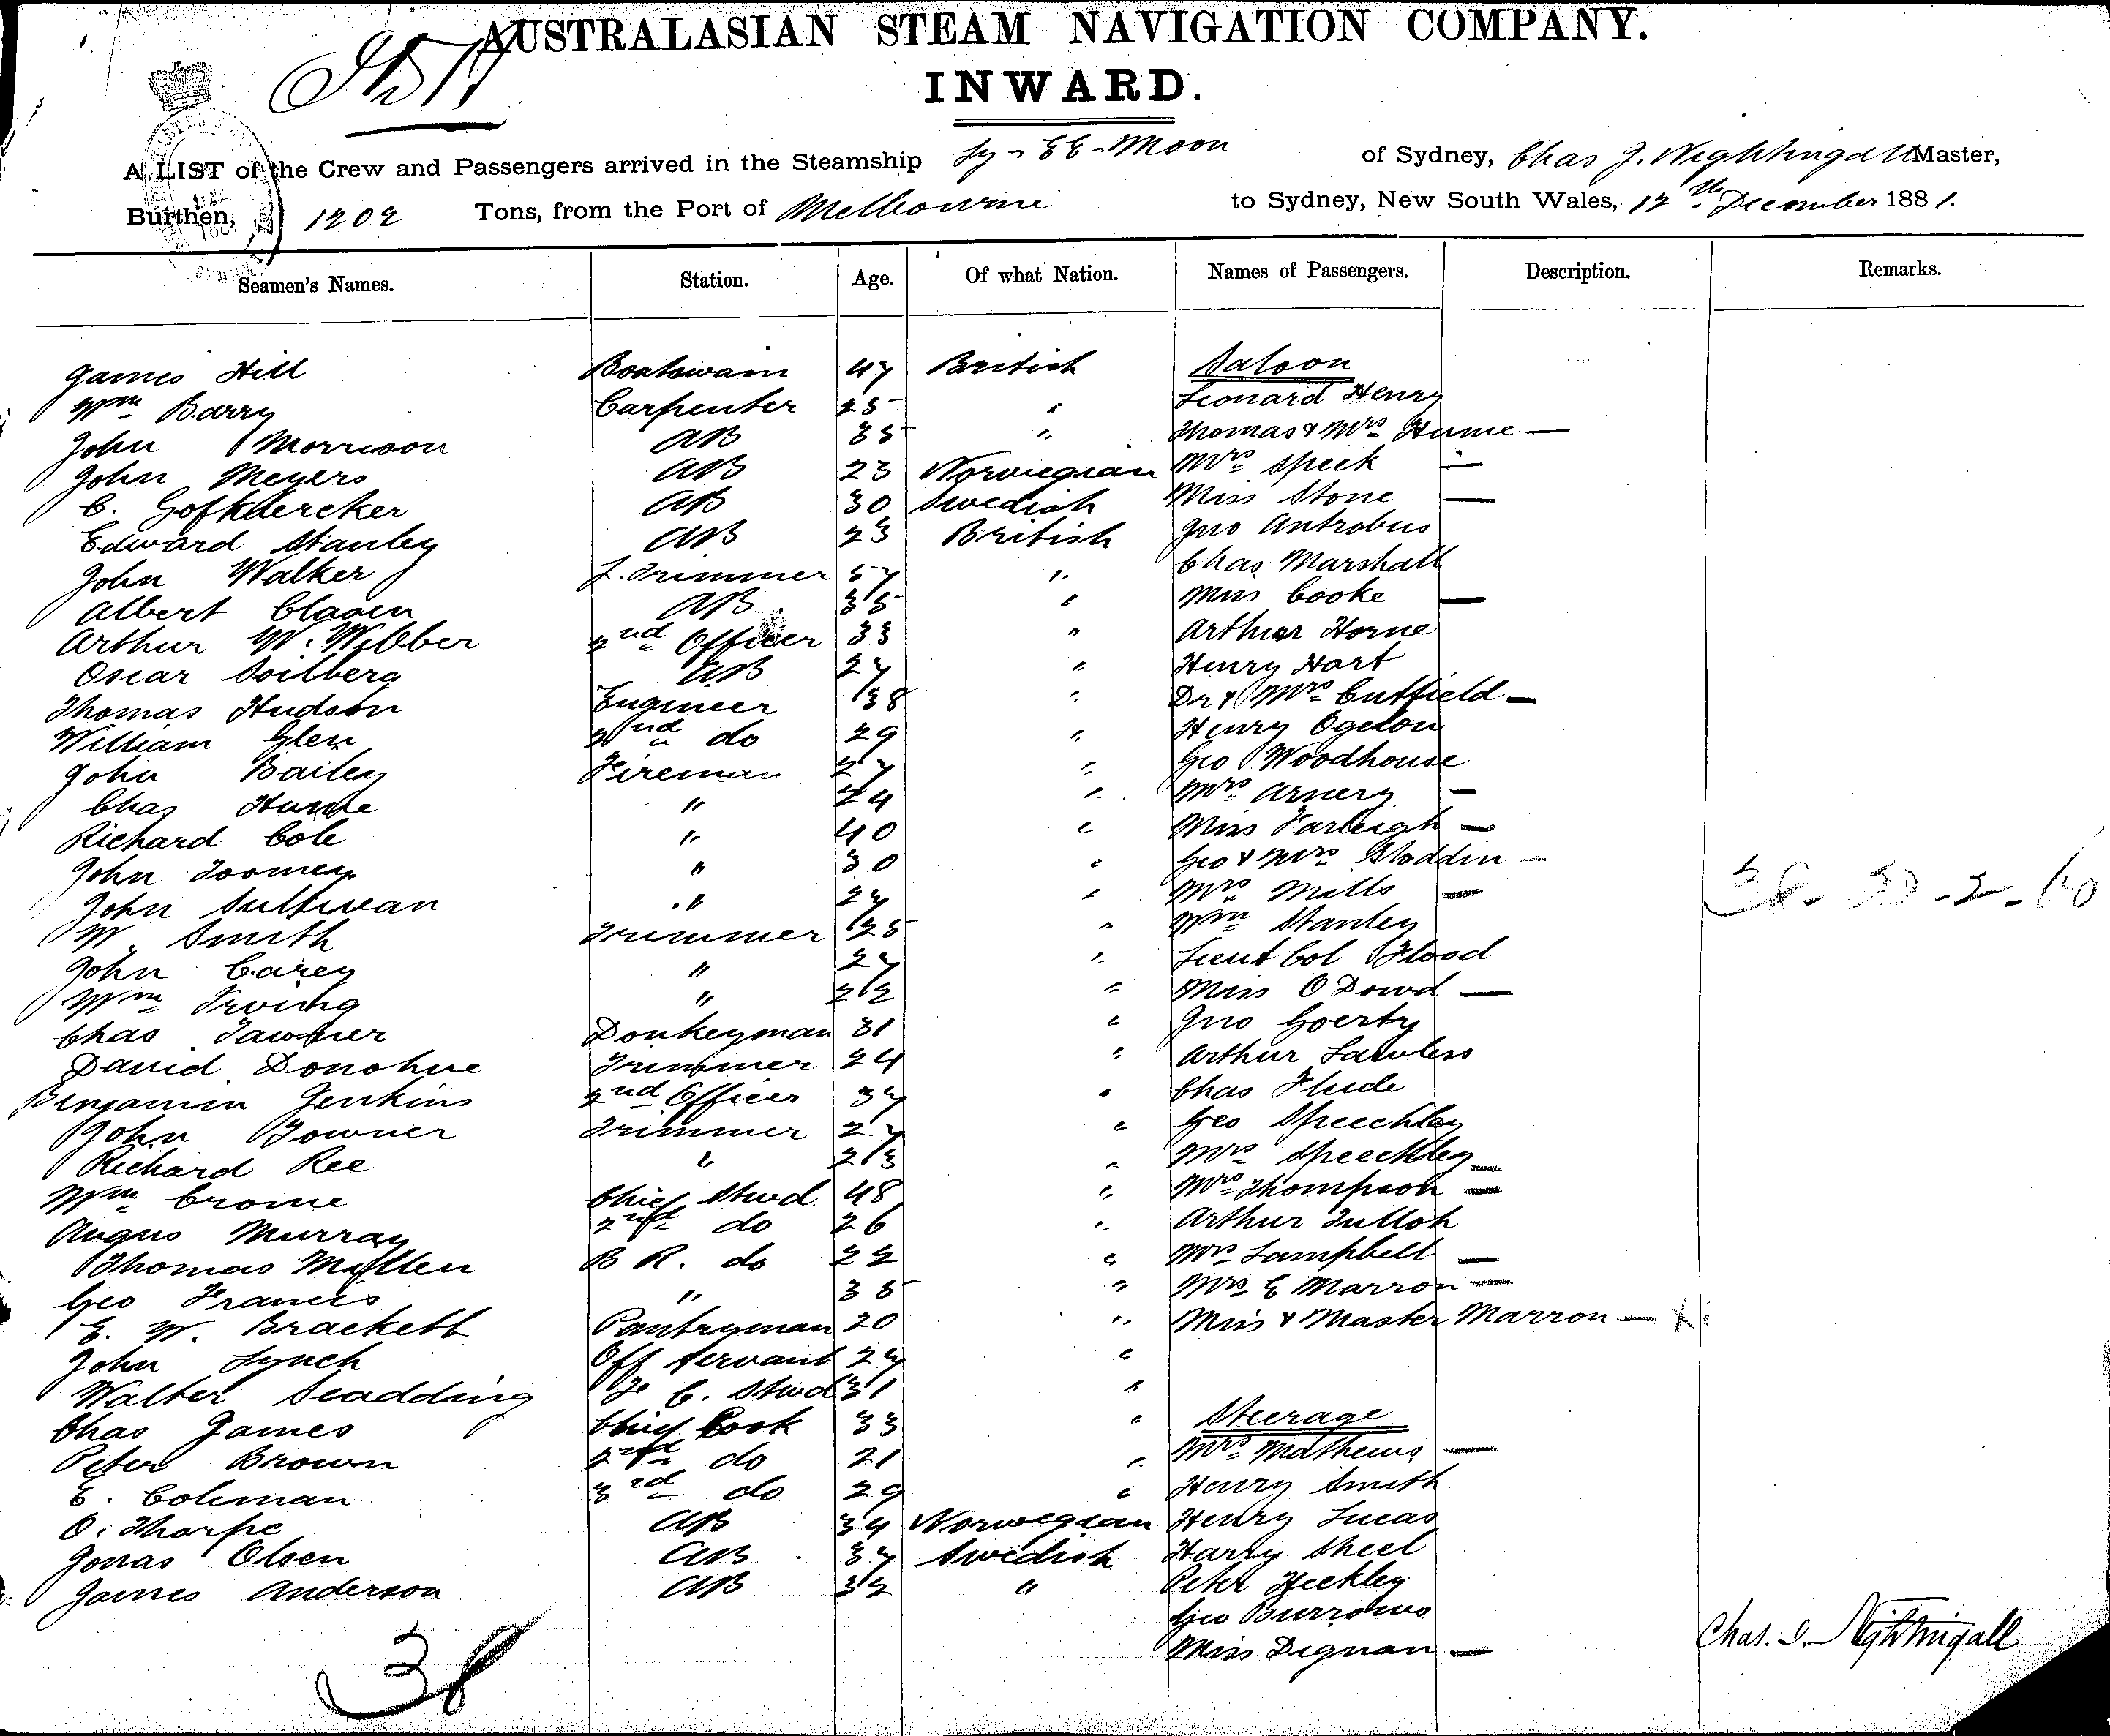 AUSTRALASIAN STEAM NAVIGATION COMPANY.
INWARD.
A LIST of the Crew and Passengers arrived in the Steamship Ly-EE-Moon of Sydney, Chas J. Nightingall Master,
Burthen, 1202 Tons, from the Port of Melbourne to Sydney, New South Wales, 12th December 1881.
Seamen's Names. Station. Age. Of what Nation. Names of Passengers. Description. Remarks.
James Hill Boatswain 47 British Saloon
Wm Barry Carpenter 25 " Leonard Henry
John Morrison AB 35 " Thomas & Mrs Hume —
John Meyers AB 23 Norwegian Mrs Speck —
C. AB 30 Swedish Miss Stone —
Edward Stanley AB 23 British Jno Antrobus
John Walker L. Trimmer 57 " Chas Marshall
Albert Clasen AB 35 " Miss Cooke —
Arthur W. Webber 2nd Officer 33 " Arthur Horne
Oscar Soilberg AB 27 " Henry Hart
Thomas Hudson Engineer 38 " Dr & Mrs Cutfield —
William Glen 2nd do 29 " Henry
John Bailey Fireman 27 " Geo Woodhouse
Chas Hume " 24 " Mrs Arnery —
Richard Cole " 40 " Miss Farleigh —
John Toomey " 30 " Geo & Mrs Stoddin —
John Sullivan " 27 " Mrs Mills —
W. Smith Trimmer 25 " Wm Stanley
John Carey " 27 " Lieut Col Flood
Wm Irving " 22 " Miss O Dowd —
Chas Tawner Donkeyman 31 " Jno Goerty
David Donohue Trimmer 24 " Arthur Lawless
Benjamin Jenkins 2nd Officer 37 " Chas Flude
John Towner Trimmer 27 " Geo Speechley
Richard Ree " 23 " Mrs Speechley —
Wm Crome Chief Stwd. 48 " Mrs Thompson —
Angus Murray 2nd do 26 " Arthur Tulloh
Thomas Mullen B R. do 22 " Mrs Lampbell —
Geo Francis " 35 " Mrs E Marron —
E. W. Brackett Pantryman 20 " Miss & Master Marron —
John Lynch Off Servant 27 "
Walter Scadding F. C. Stwd 31 "
Chas James Chief Cook 33 " Steerage
Peter Brown 2nd do 21 " Mrs Mathews —
E. Coleman 3rd do 29 " Henry Smith
O. Thorpe AB 34 Norwegian Henry Lucas
Jonas Olsen AB 37 Swedish Harry Sheel
James Anderson AB 32 " Peter Heckley
Geo Burrows
Miss Dignan —
38
Chas. J. Nightingall